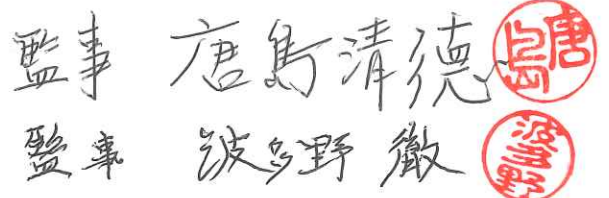 監事 唐島清徳 唐島
監事 波多野 徹 波多野